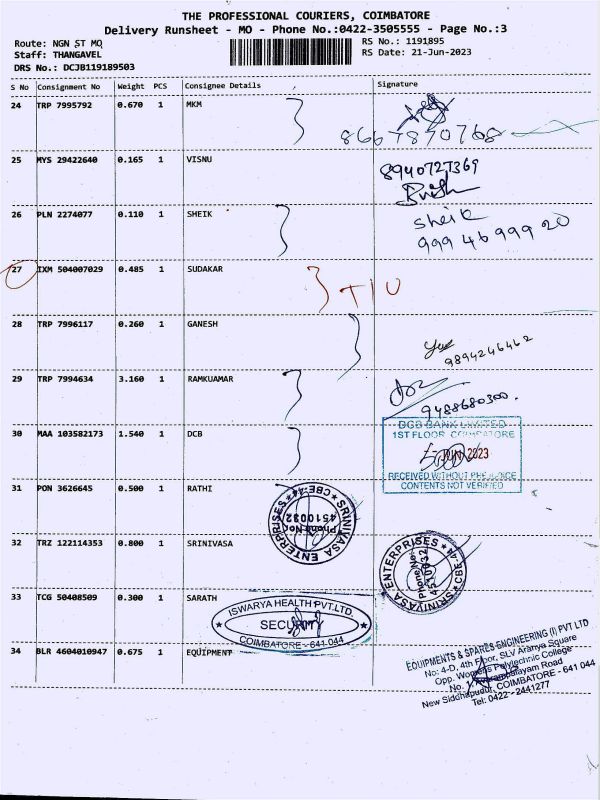 THE PROFESSIONAL COURIERS, COIMBATORE
Delivery Runsheet - MO - Phone No.:0422-3505555 - Page No.:3
Route: NGN ST MO
RS No.: 1191895
Staff: THANGAVEL
RS Date: 21-Jun-2023
DRS No.: DCJB119189503
S No Consignment No Weight PCS Consignee Details Signature
24 TRP 7995792 0.670 1 MKM
8667870768
25 MYS 29422640 0.165 1 VISNU
8940727369
26 PLN 2274077 0.110 1 SHEIK
Sheik
999 46 999 20
27 IXM 504007029 0.485 1 SUDAKAR
28 TRP 7996117 0.260 1 GANESH
9894246462
29 TRP 7994634 3.160 1 RAMKUAMAR
9488680300.
30 MAA 103582173 1.540 1 DCB
DCB BANK LIMITED
1ST FLOOR, COIMBATORE
JUN 2023
RECEIVED WITHOUT PREJUDICE
CONTENTS NOT VERIFIED
31 PON 3626645 0.500 1 RATHI
SRINIVASA ENTERPRISES ★ CBE-44 ★
Phone No:
4510032
32 TRZ 122114353 0.800 1 SRINIVASA
SRINIVASA ENTERPRISES ★ CBE-44 ★
Phone No:
4510032
33 TCG 50408509 0.300 1 SARATH
ISWARYA HEALTH PVT.LTD.
SECURITY
COIMBATORE - 641 044
34 BLR 4604010947 0.675 1 EQUIPMENT
EQUIPMENTS & SPARES ENGINEERING (I) PVT LTD
No: 4-D, 4th Floor, SLV Aranya Square
Opp. Womens Polytechnic College
No. 1, Avarampalayam Road
New Siddhapudur, COIMBATORE - 641 044
Tel: 0422 - 2441277